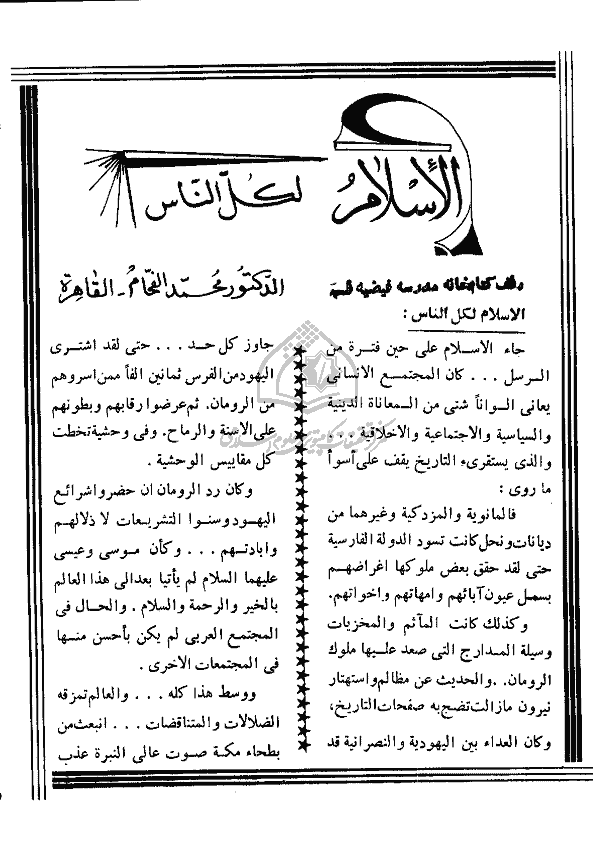 الإسلام لكل الناس
الدكتور محمد الفحام - القاهرة
وقف كتابخانه مدرسه فيضيه قم
الاسلام لكل الناس :
جاء الاسلام على حين فترة من
الرسل ... كان المجتمع الانسانى
يعانى الواناً شتى من المعاناة الدينية
والسياسية والاجتماعية والاخلاقية ...
والذى يستقرىء التاريخ يقف على أسوأ
ما روى :
فالمانوية والمزدكية وغيرهما من
ديانات ونحل كانت تسود الدولة الفارسية
حتى لقد حقق بعض ملوكها اغراضهم
بسمل عيون آبائهم وامهاتهم واخواتهم.
وكذلك كانت المآثم والمخزيات
وسيلة المدارج التى صعد عليها ملوك
الرومان. .والحديث عن مظالم واستهتار
نيرون مازالت تضج به صفحات التاريخ،
وكان العداء بين اليهودية والنصرانية قد
جاوز كل حد ... حتى لقد اشترى
اليهود من الفرس ثمانين الفاً ممن اسروهم
من الرومان. ثم عرضوا رقابهم وبطونهم
على الأسنة والرماح. وفى وحشية تخطت
كل مقاييس الوحشية .
وكان رد الرومان ان حضروا شرائع
اليهود وسنوا التشريعات لاذلالهم
وابادتهم ... وكأن موسى وعيسى
عليهما السلام لم يأتيا بعدالى هذا العالم
بالخير والرحمة والسلام . والحال فى
المجتمع العربى لم يكن بأحسن منها
فى المجتمعات الاخرى .
ووسط هذا كله ... والعالم تمزقه
الضلالات والمتناقضات ... انبعث من
بطحاء مكة صوت عالى النبرة عذب